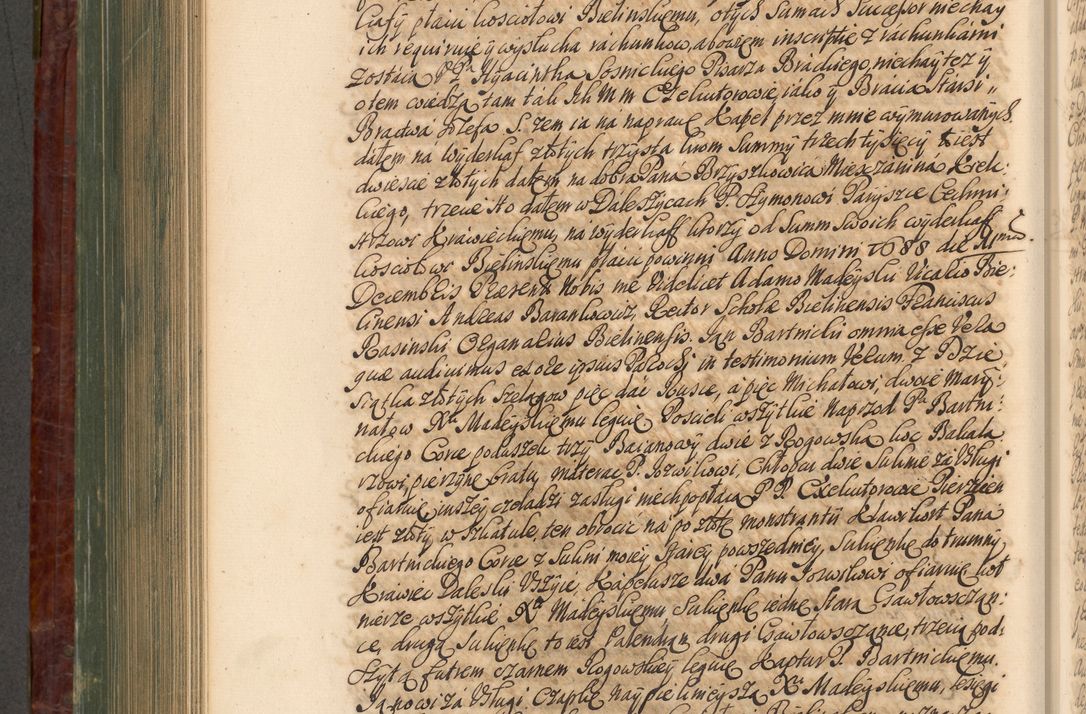 kafy płacić kosciołowi Bielinskiemu, o tych Sumach Successor niechay
ich requiruie y wysłucha rachunkow, abowiem inscriptie z rachunkami
zostaią P. Pa. Hyacintha Sosnickiego Pisarza Brackiego, niechay też y
otem wiedzą tam tak Ich M m Exekutorowie, iako y Bracia Starsi
Bractwa Jozefa S. żem ia na naprawę Kapel przez mnie wymurowanych
dałem na wyderkaf złotych trzysta, krom Summy trzech tysięcy iest
dwiescie złotych dałem na dobra Pana Brzyszkowica Mieszczanina Kielc:
kiego, trzecie sto dałem w Daleszycach P. Szymonowi Paryszce Cechmi:
strzowi Krawieckiemu, na wyderkaff ktorzy od Summ swoich wyderkaff
kosciołowi Bielinskiemu płacić powinni Anno Domini 1688 die
Decembris Præsente Nobis me Videlicet Adamo Madeyski Vicario Bie:
linensi Andreas Barankowicz Rector Scholæ Bielinensis Franciscus
Rasinski Organarius Bielinensis. Jan Bartnicki omnia esse Vera
quæ audivimus ex ore ipsius Parochi in testimonium Verum. z
siątka złotych szelągow pięc dać Kusie, a pięc Michałowi, dwoie
natow Xu Madeyskiemu leguię Poscieli wszytkie naprzod Pa Bartni:
ckiego Corce poduszek trzy Baianowy dwie z Rogowska koc Bakała
rzowi, pierzynę bratu, materac P. Jozwikowi, Chłopcu dwie Suknie za Usługi
ofiaruię inszey czeladzi zasługi niech popłacą P P. Exekutorowie Pierzcien
iest złoty w szkatule, ten obrocic na pozłotę monstrantÿ Klawikort Pana
Bartnickiego Corce z Sukni moiey starey powszedniey, Sukienkę do trumny
Krawiec Daleski Uszyie, Kapelusze dwa Panu Jozwikowi ofiaruię koł
nierze wszytkie Xu Madeyskiemu Sukienkę iednę stara Gzawłowsczan:
ce, drugą Sukienkę to iest Palendyan, drugi Gzawłowsczance, trzecią pod:
szytą futrem czarnem Rogowskiey leguię Kaptur P. Bartnickiemu.
Janowi za Usługi Czapkę naypięknieyszą Xu Madeyskiemu, księgi